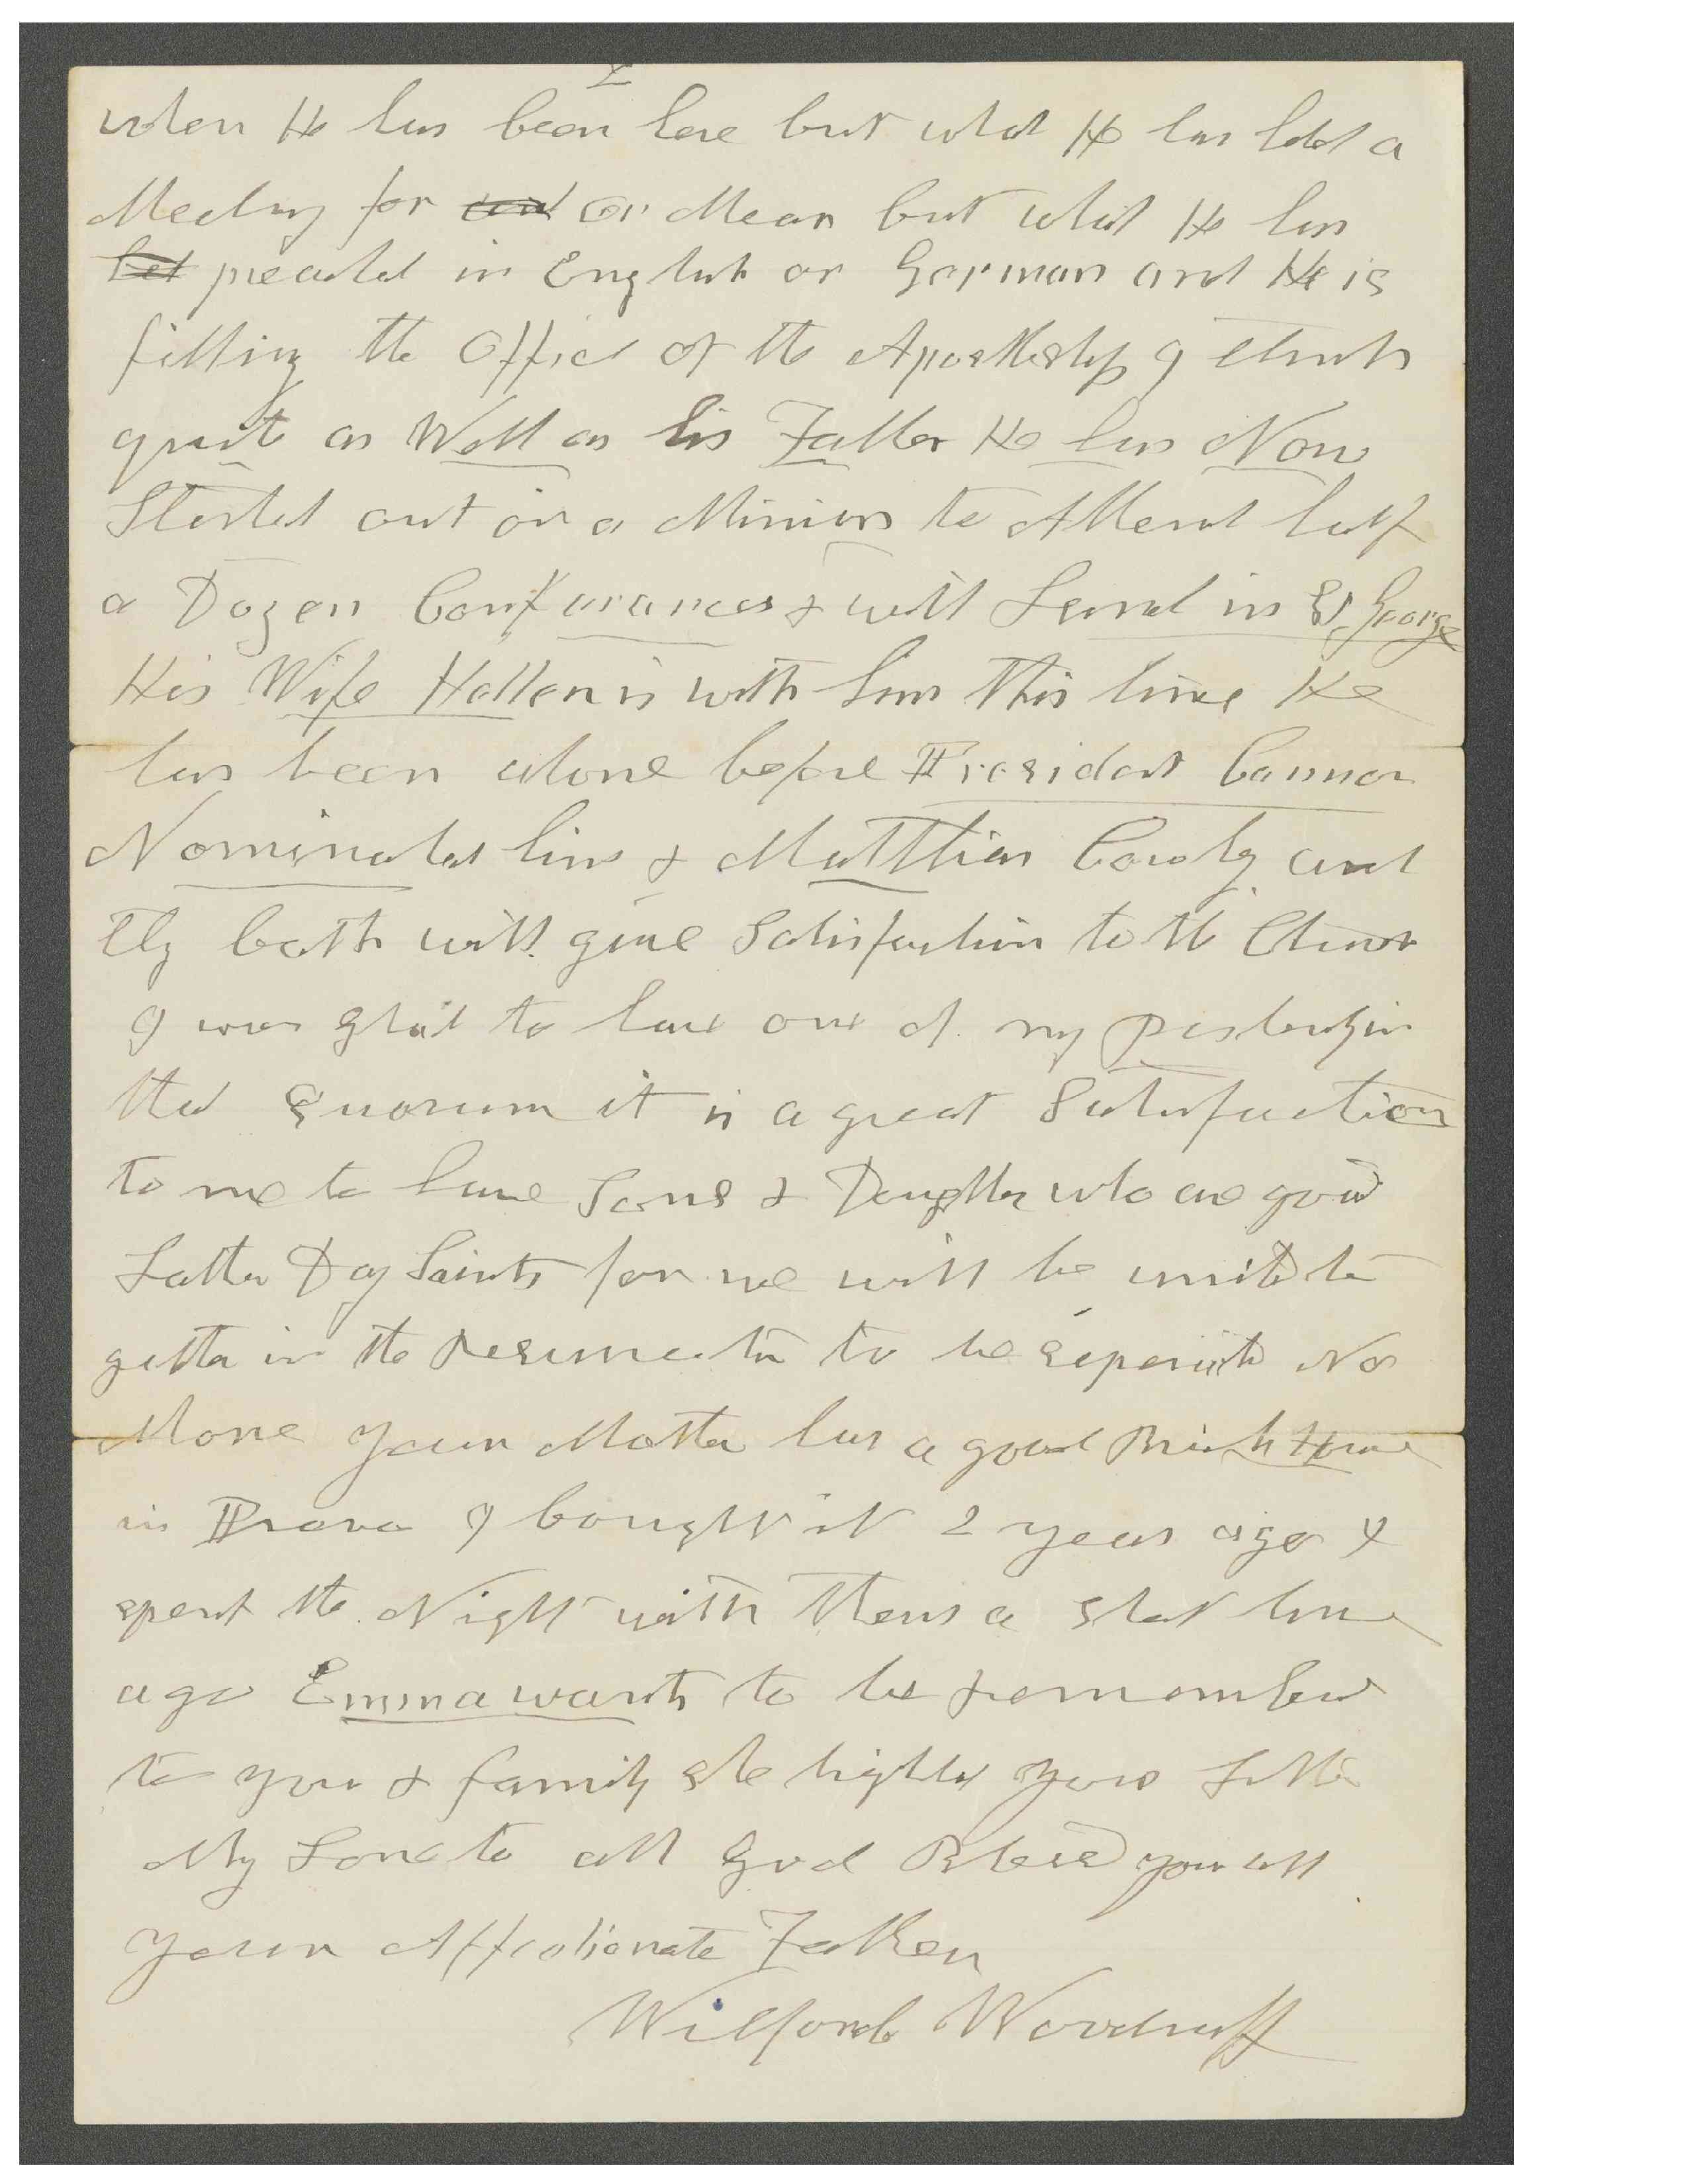 2
when He has been here but what He has held a
Meeting for and or Mear but what He has
het preached in English or German and He is
filling the Office of the Apostleship I think
quite as Well as his Father He has Now
Started out on a Mission to Attend half
a Dozen Conferances & will Send in St George
His Wife Hellen is with him this time He
has been alone before President Cannon
Nominated him & Matthias Cowley and
they both will give Satisfaction to the Church
I was glad to have one of my posterity in
that Quorum it is a great Satisfaction
to me to have Sons & Daughters who are good
Latter Day Saints for we will be united to
gether in the resurrection to be seperated No
More your Mother has a good Brick Home
in Provo I bought it 2 years ago &
spent the Night with them a short time
ago Emma wants to be remembered
to you & family she highly your Letter
My Love to all God Bless you all
Your Affectionate Father
Wilford Woodruff